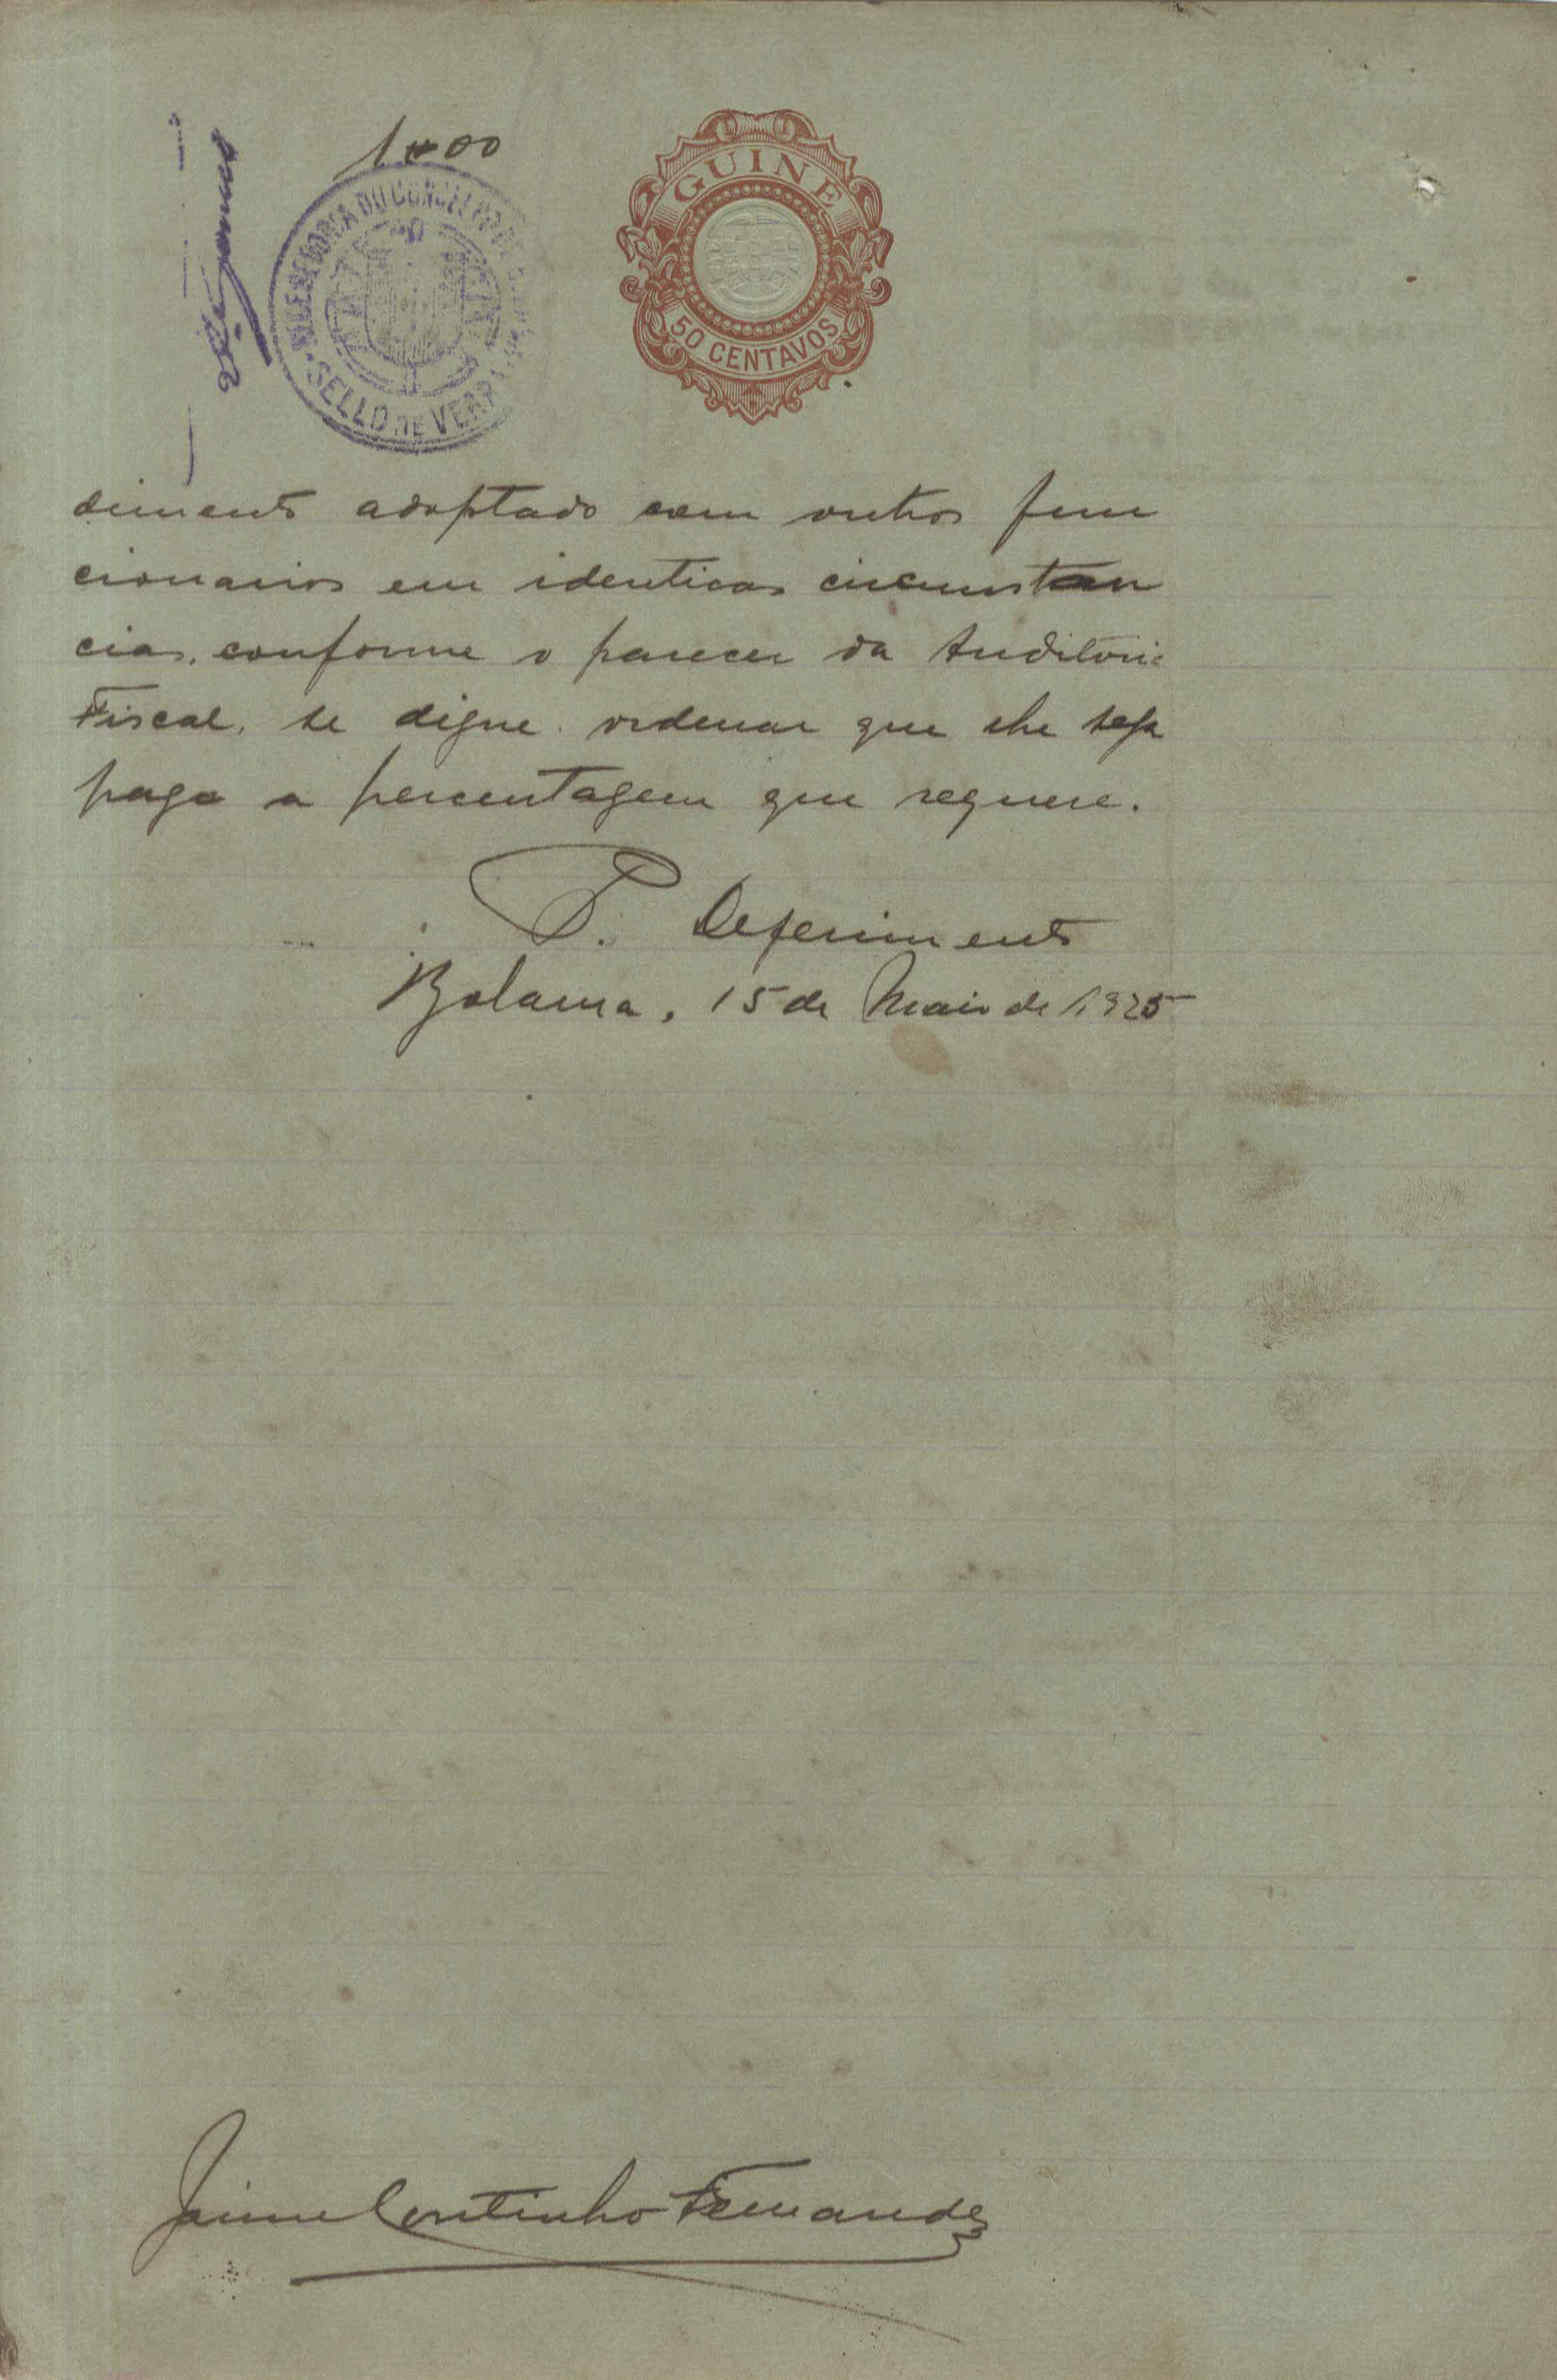 1$00
GUINÉ
50 CENTAVOS
SELLO DE VERBA
dimento adoptado com outros fun
cionarios em identicas circunstan
cias, conforme o parecer da Auditoria
Fiscal, se digne ordenar que lhe seja
paga a percentagem que requere.
P. Deferimento
Bolama, 15 de Maio de 1925
Jaime Coutinho Fernandes